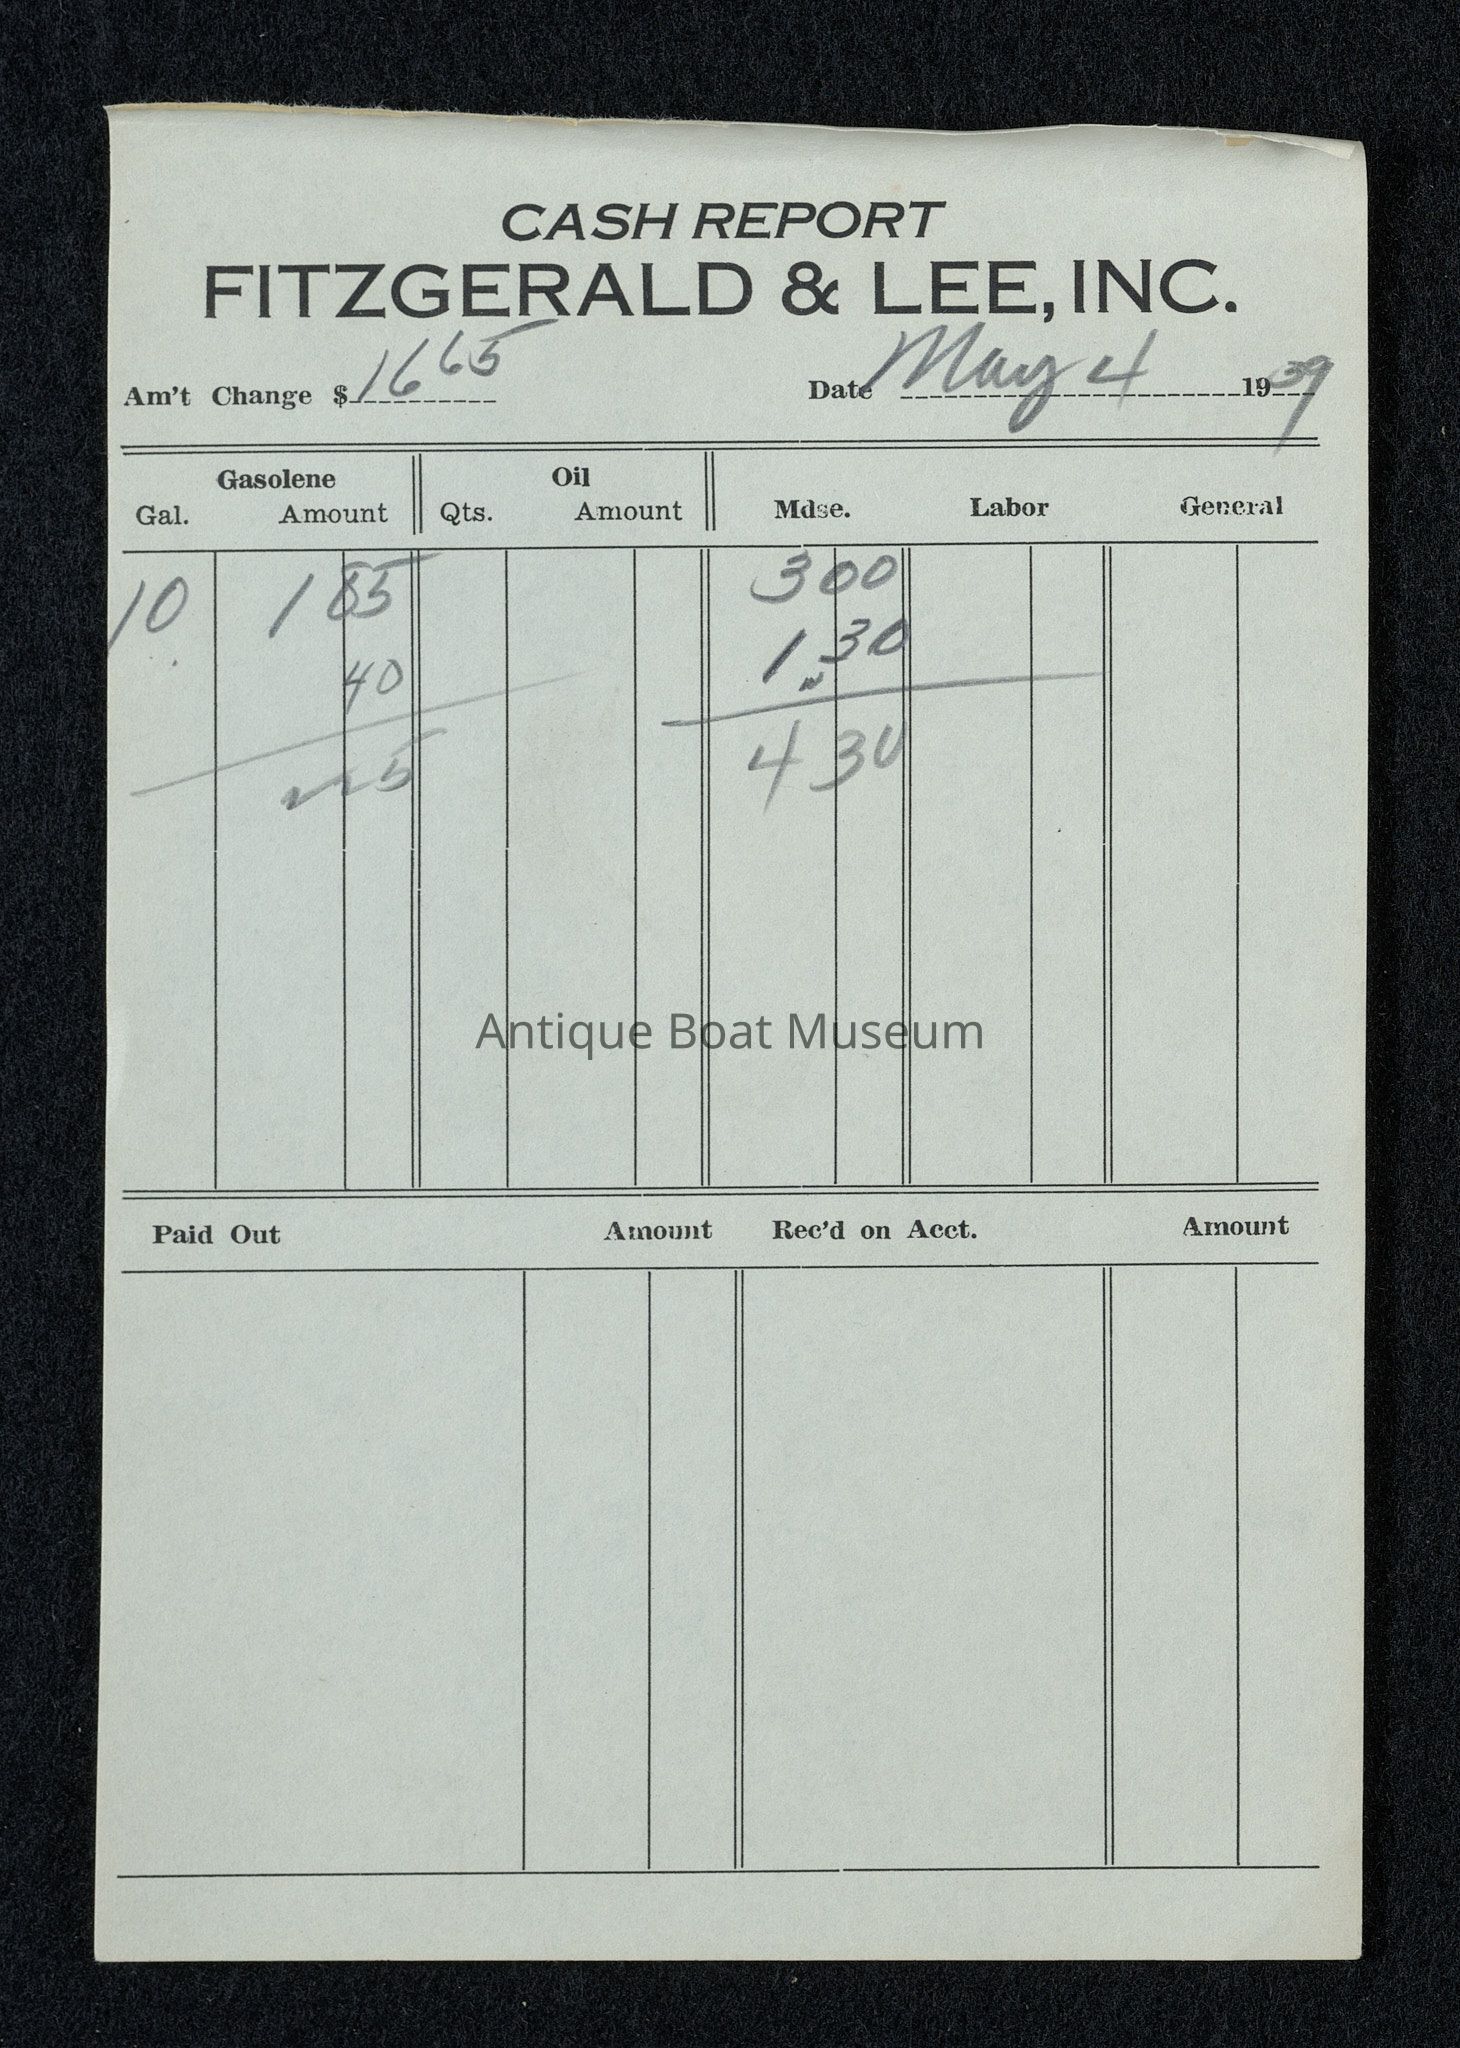 CASH REPORT
FITZGERALD & LEE, INC.
Am't Change $ 16 65 Date May 4 1939
Gasolene Oil
Gal. Amount Qts. Amount Mdse. Labor General
10 1 85 3 00
40 1.30
2 25 4 30
Antique Boat Museum
Paid Out Amount Rec'd on Acct. Amount